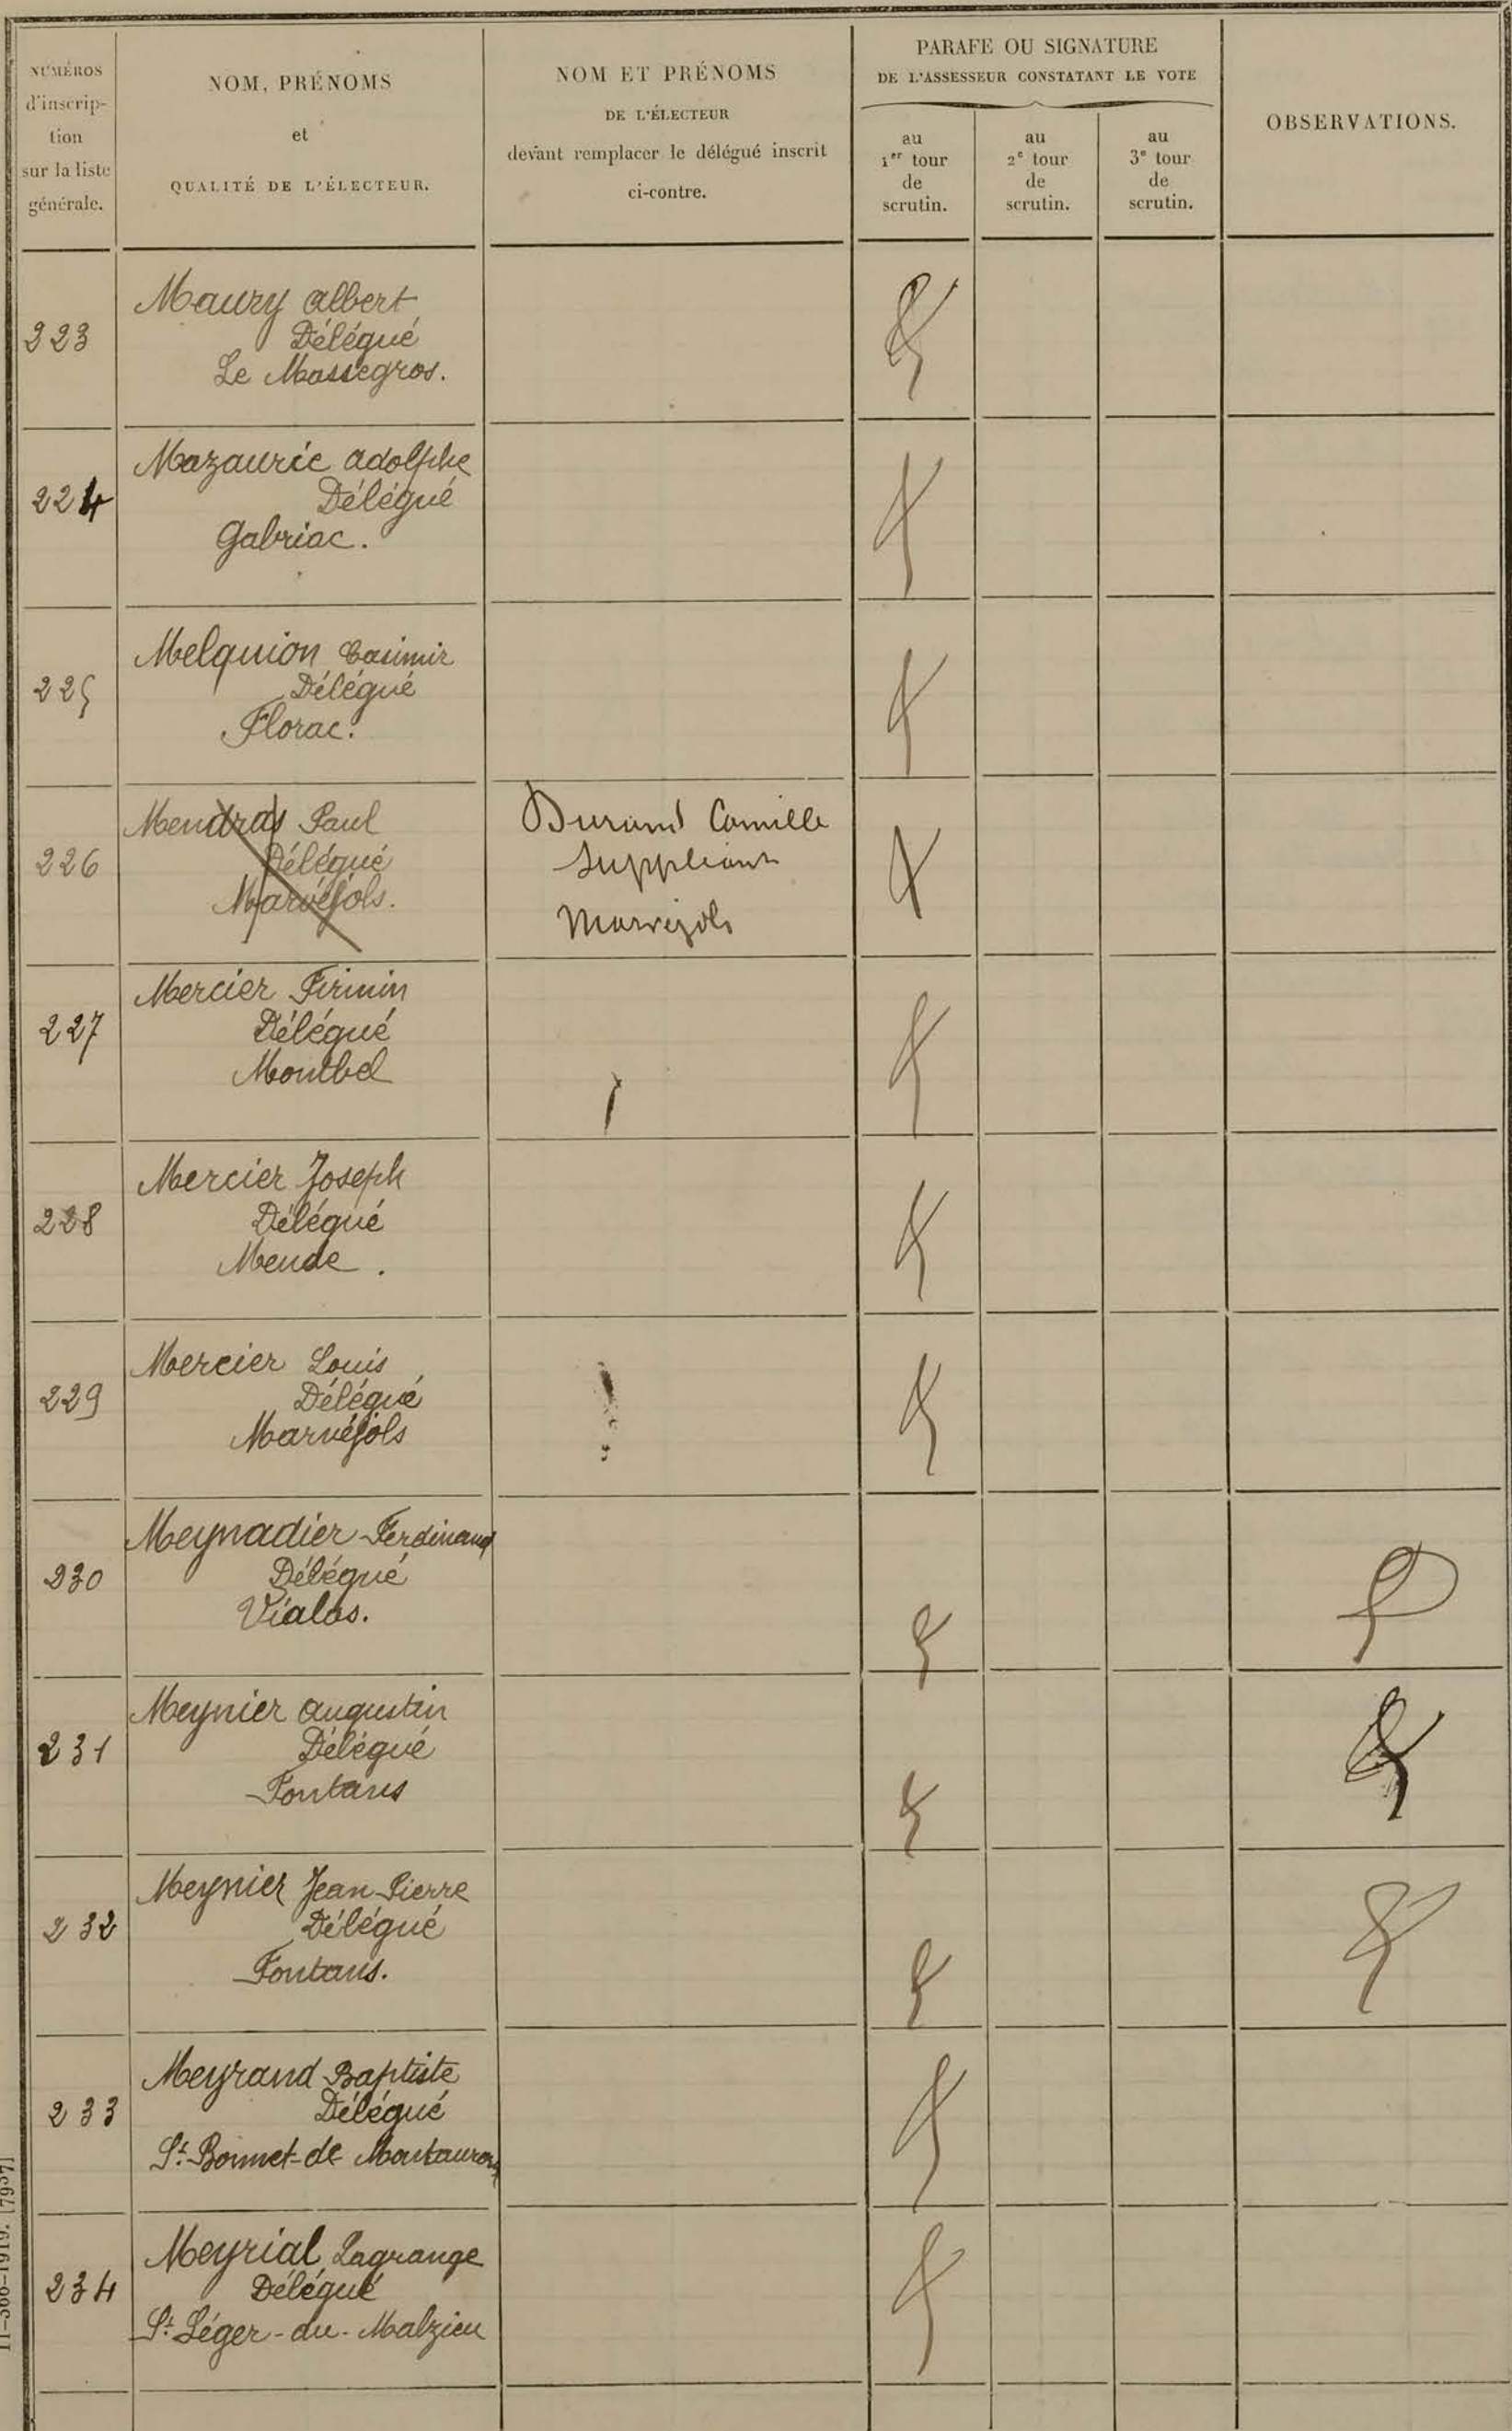 NUMÉROS
d'inscrip-
tion
sur la liste
générale.
NOM, PRÉNOMS
et
QUALITÉ DE L'ÉLECTEUR.
NOM ET PRÉNOMS
DE L'ÉLECTEUR
devant remplacer le délégué inscrit
ci-contre.
PARAFE OU SIGNATURE
DE L'ASSESSEUR CONSTATANT LE VOTE
au
1er tour
de
scrutin.
au
2e tour
de
scrutin.
au
3e tour
de
scrutin.
OBSERVATIONS.
223
Maury Albert
Délégué
Le Massegros.
224
Mazauric Adolphe
Délégué
Gabriac.
225
Melquion Casimir
Délégué
Florac.
226
Mendras Paul
Délégué
Marvéjols.
Durand Camille
Suppléant
Marvejols
227
Mercier Firmin
Délégué
Montbel
228
Mercier Joseph
Délégué
Mende.
229
Mercier Louis
Délégué
Marvéjols
230
Meynadier Ferdinand
Délégué
Vialas.
231
Meynier Augustin
Délégué
Fontans
232
Meynier Jean-Pierre
Délégué
Fontans.
233
Meyrand Baptiste
Délégué
St. Bonnet-de Montauroux
234
Meyrial Lagrange
Délégué
St. Léger-du-Malzieu